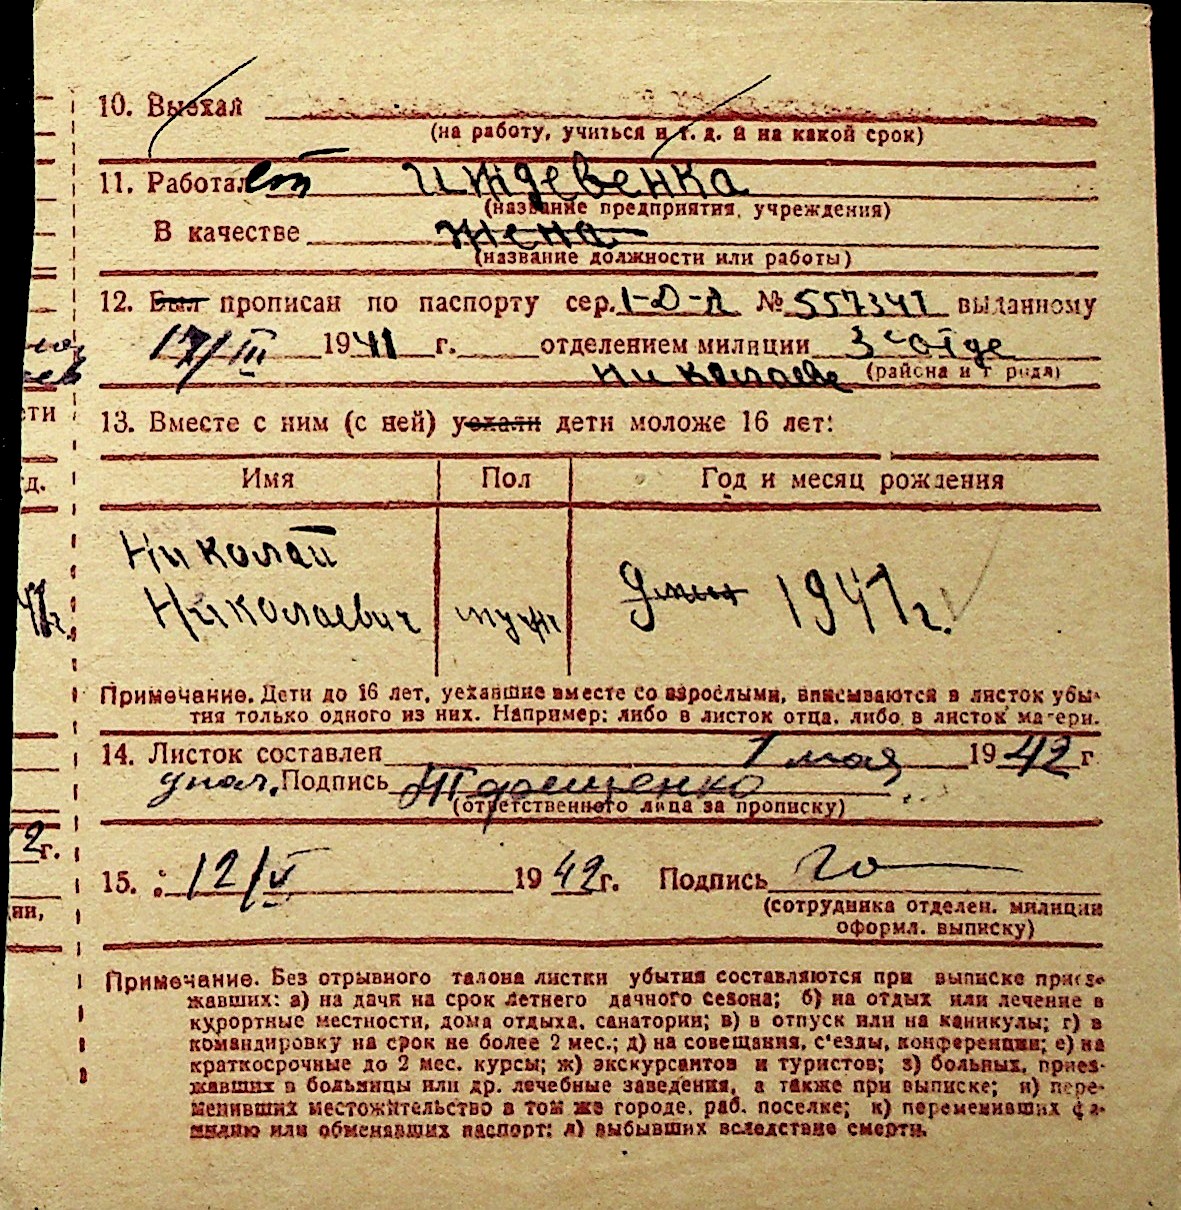 10. Выехал
(на работу, учиться и т. д. и на какой срок)
11. Работает иждевенка
(название предприятия, учреждения)
В качестве жена
(название должности или работы)
12. Был прописан по паспорту сер. 1-D-Д № 557341 выданному
17/III 1941 г. отделением милиции 3 отде
Николаеве (района и города)
13. Вместе с ним (с ней) уехали дети моложе 16 лет:
Имя Пол Год и месяц рождения
Николай
Николаевич муж 1941 г.
Примечание. Дети до 16 лет, уехавшие вместе со взрослыми, вписываются в листок убы-
тия только одного из них. Например: либо в листок отца, либо в листок матери.
14. Листок составлен 1 мая 1942 г
Подпись Терещенко
(ответственного лица за прописку)
15. 12/V 1942 г. Подпись
(сотрудника отделен. милиции
оформл. выписку)
Примечание. Без отрывного талона листки убытия составляются при выписке приез-
жавших: а) на дачи на срок летнего дачного сезона; б) на отдых или лечение в
курортные местности, дома отдыха, санатории; в) в отпуск или на каникулы; г) в
командировку на срок не более 2 мес.; д) на совещания, с'езды, конференции; е) на
краткосрочные до 2 мес. курсы; ж) экскурсантов и туристов; з) больных, приез-
жавших в больницы или др. лечебные заведения, а также при выписке; и) пере-
менивших местожительство в том же городе, раб. поселке; к) переменивших фа-
милию или обменавших паспорт; л) выбывших вследствие смерти.